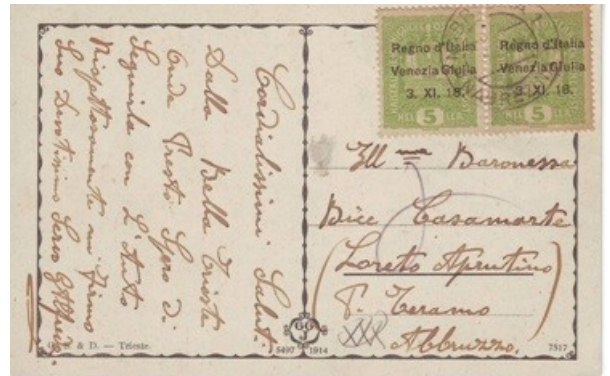 Regno d'Italia
Venezia Giulia
3. XI. 18.
5
Regno d'Italia
Venezia Giulia
3. XI. 18.
5
Cordialissimi Saluti
Dalla Bella Trieste
Onde Presto Spero di
Seguirla con L'Auto
Rispettosamente mi firmo
Suo Devotissimo Servo
Ill ma Baronessa
Bice Casamarte
(Loreto Aprutino)
P. Teramo
Abbruzzo.
& D. — Trieste.
GG
J
5497 1914
7517